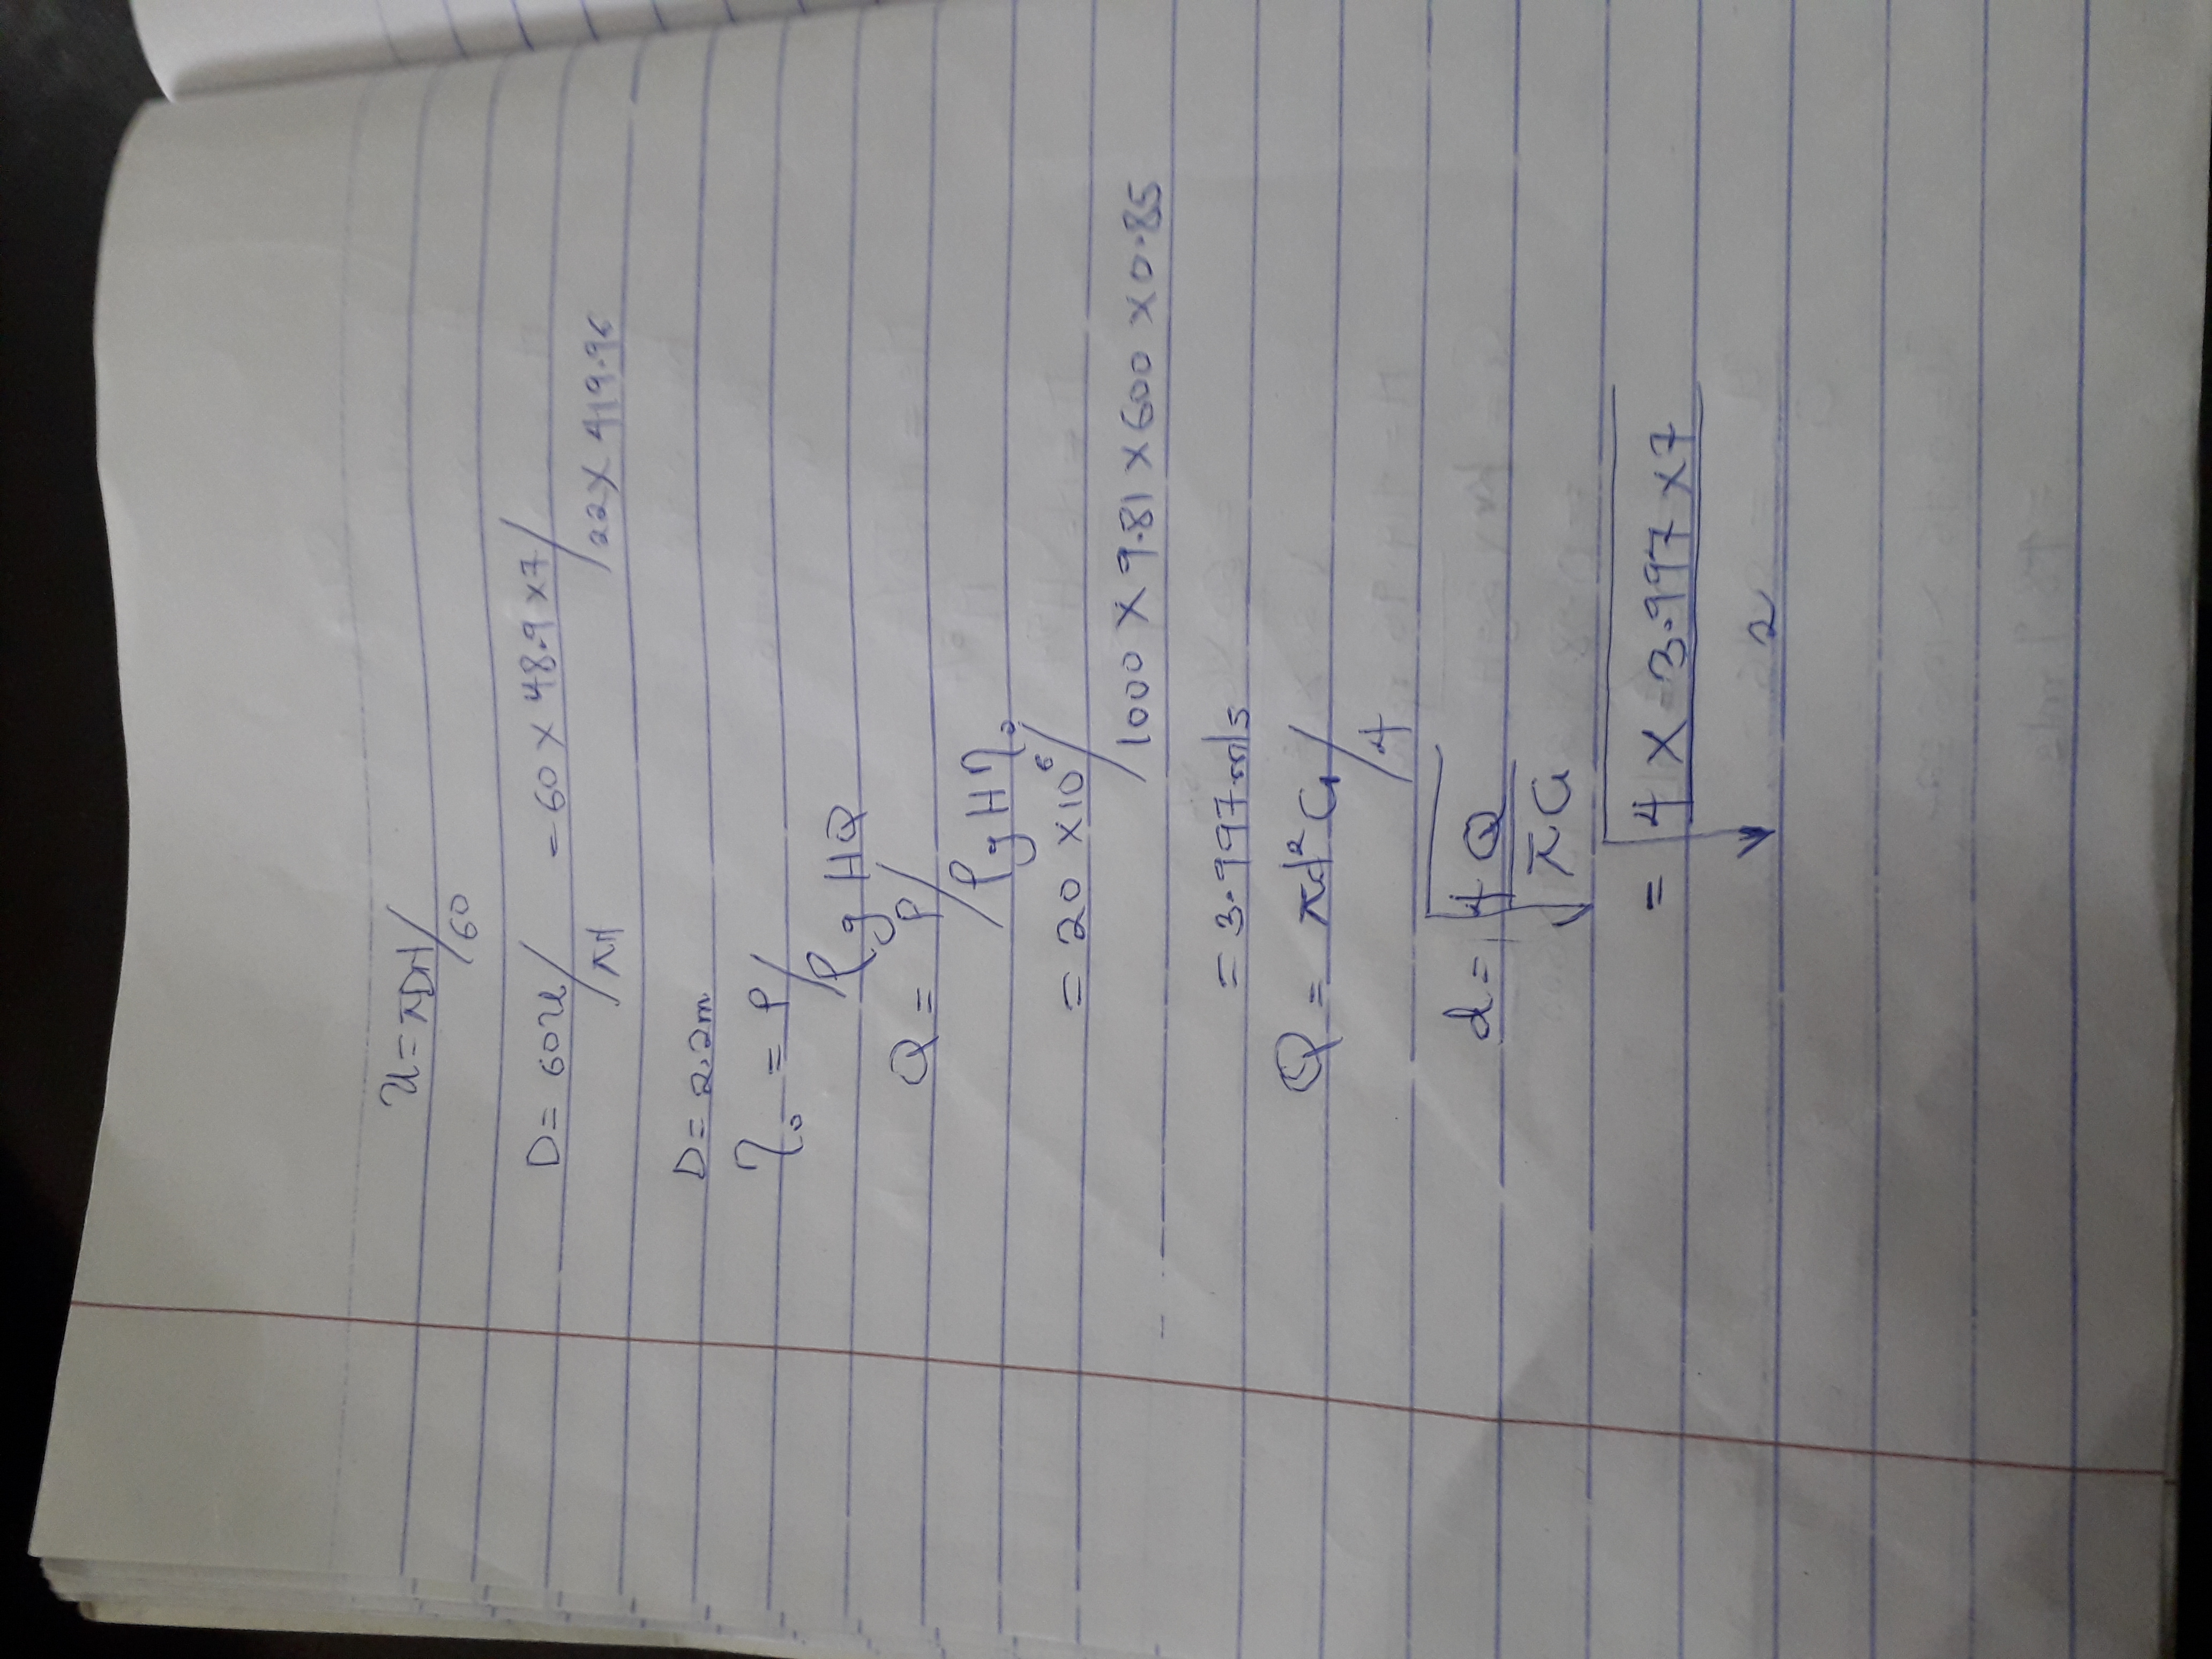 u = πDN/60
D = 60u/πN = 60 × 48.9 × 7/22 × 419.96
D = 2.2m
η₀ = P/ρgHQ
Q = P/ρgHη₀
= 20 × 10⁶/1000 × 9.81 × 600 × 0.85
= 3.997m/s
Q = πd²C₁/4
d = √4Q/πC₁
= √4 × 3.997 × 7/2